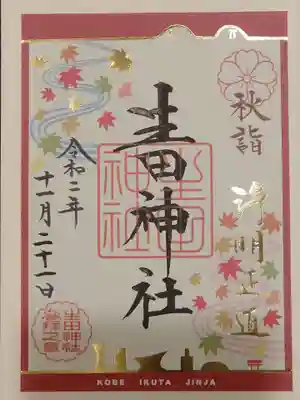 秋詣
清明正直
生田神社
生田神社
令和二年
十一月二十一日
生田神社
KOBE IKUTA JINJA